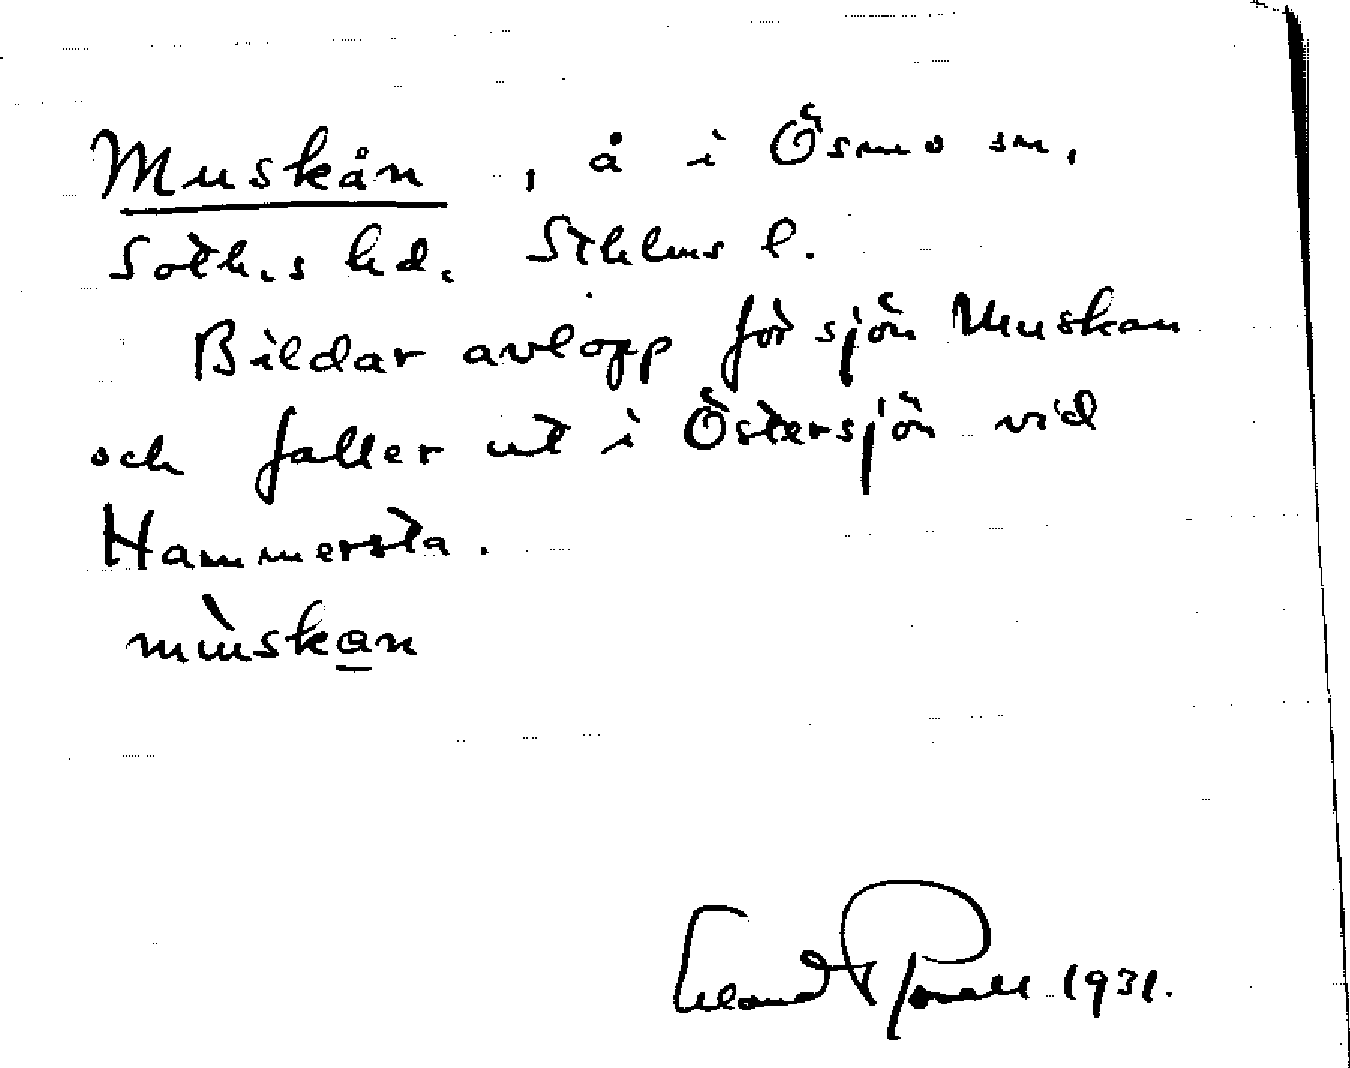 Muskån, å i Ösmo sn,
Soth.s hd. Sthlms l.
Bildar avlopp för sjön Muskan
och faller ut i Östersjön vid
Hammersta.
mùskan
1931.